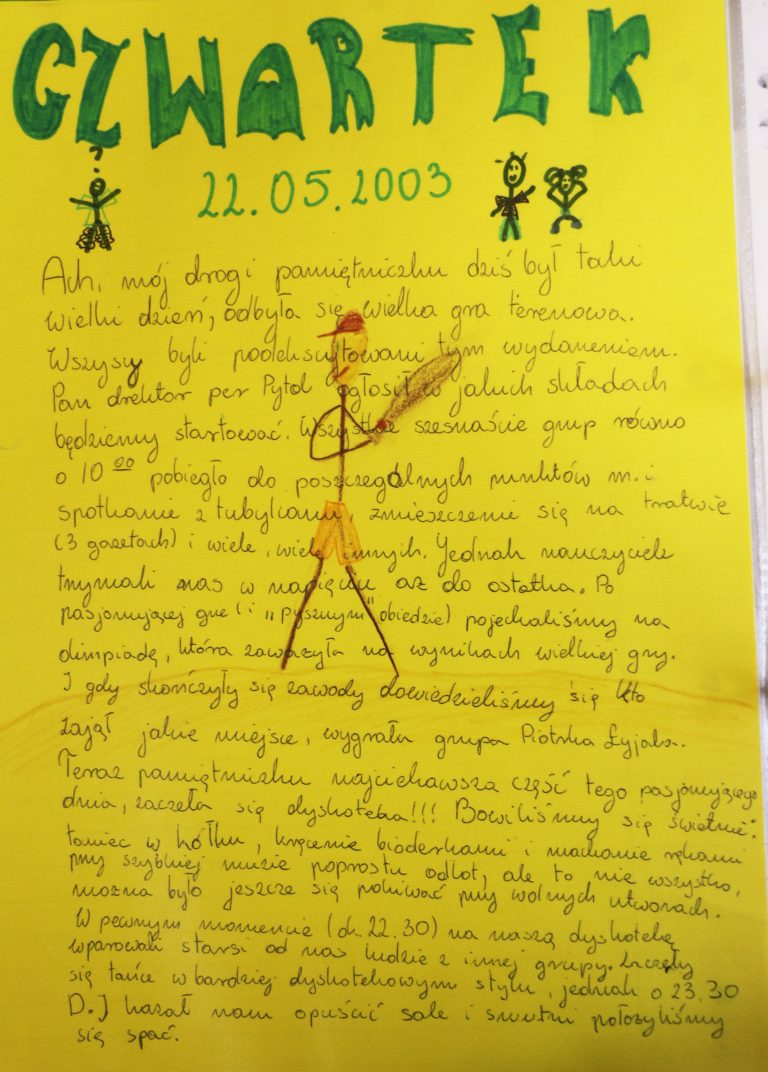 CZWARTEK
?
22.05.2003
Ach, mój drogi pamiętniczku dziś był taki
wielki dzień, odbyła się wielka gra terenowa.
Wszyscy byli podekscytowani tym wydarzeniem.
Pan drektor per Pytol ogłosił w jakich składach
będziemy startować. Wszystkie szesnaście grup równo
o 10 00 pobiegło do poszczególnych punktów m.i
spotkanie z tubylcami, zmieszczenie się na tratwie
(3 gazetach) i wiele, wiele innych. Jednak nauczyciele
trzymali nas w napięciu aż do ostatka. Po
pasjonującej grze (i "pysznym" obiedzie) pojechaliśmy na
olimpiadę, która zaważyła na wynikach wielkiej gry.
I gdy skończyły się zawody dowiedzieliśmy się kto
zajął jakie miejsce, wygrała grupa Piotrka Łyjaka.
Teraz pamiętniczku najciekawsza część tego pasjonującego
dnia, zaczęła się dyskoteka!!! Bawiliśmy się świetnie:
taniec w kółku, kręcenie bioderkami i machanie rękami
przy szybkiej muzie poprostu odlot, ale to nie wszystko,
można było jeszcze się pokiwać przy wolnych utworach.
W pewnym momencie (ok. 22.30) na naszą dyskotekę
wparowali starsi od nas ludzie z innej grupy. Zaczęły
się tańce w bardziej dyskotekowym stylu, jednak o 23.30
D.J kazał nam opuścić sale i smutni położyliśmy
się spać.